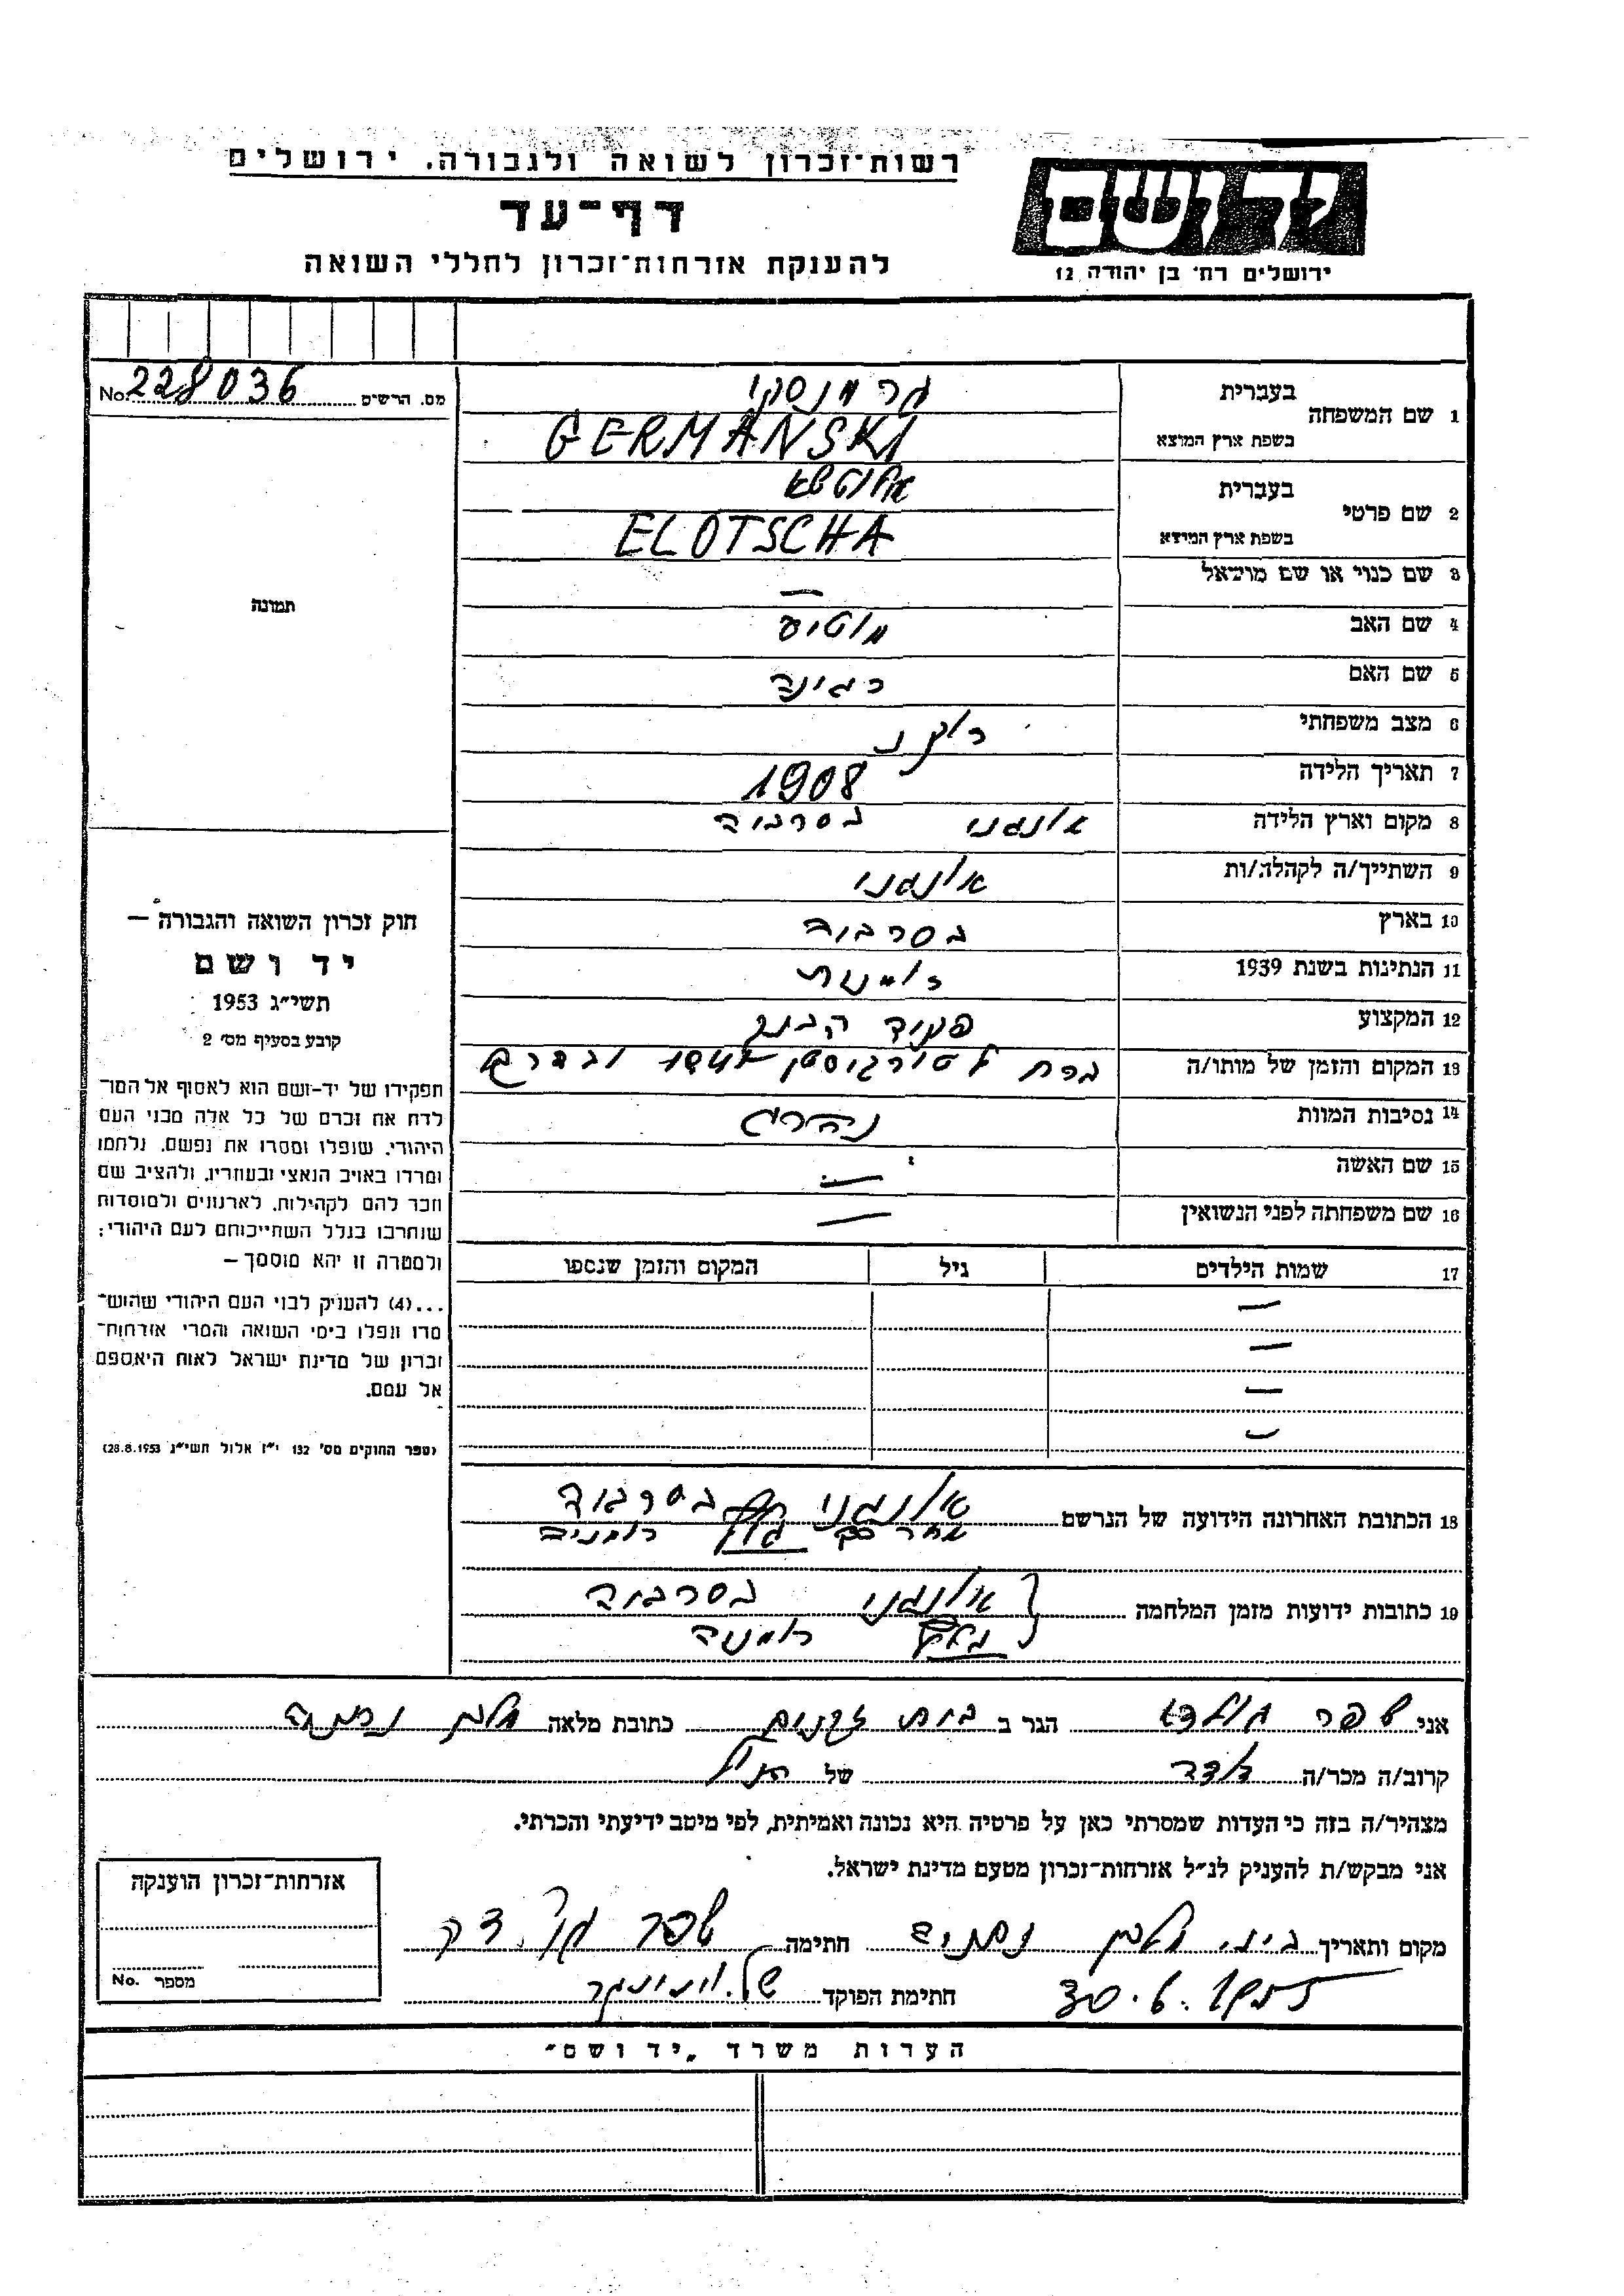 רשות־זכרון לשואה ולגבורה. ירושלים
דף־עד
להענקת אזרחות־זכרון לחללי השואה
יד ושם
ירושלים רח׳ בן יהודה 12
No. 228036 מס. הרשים
1 שם המשפחה בעברית גרמנסקי
בשפת ארץ המוצא GERMANSKI
2 שם פרטי בעברית אלוטשא
בשפת ארץ המוצא ELOTSCHA
3 שם כנוי או שם מושאל —
4 שם האב מוטיע
5 שם האם רגינה
6 מצב משפחתי רוק
7 תאריך הלידה 1908
8 מקום וארץ הלידה אונגני בסרביה
9 השתייך/ה לקהלה/ות אונגני
10 בארץ בסרביה
11 הנתינות בשנת 1939 רומנית
12 המקצוע פקיד הבנק
13 המקום והזמן של מותו/ה ברח ובדרך
14 נסיבות המוות נהרג
15 שם האשה —
16 שם משפחתה לפני הנשואין —
17 שמות הילדים גיל המקום והזמן שנספו
—
—
—
—
18 הכתובת האחרונה הידועה של הנרשם אונגני בסרביה
אחר כך רומניה
19 כתובות ידועות מזמן המלחמה אונגני בסרביה
רומניה
תמונה
חוק זכרון השואה והגבורה —
יד ושם
תשי״ג 1953
קובע בסעיף מס׳ 2
תפקידו של יד-ושם הוא לאסוף אל המו־
לדת את זכרם של כל אלה מבני העם
היהודי, שנפלו ומסרו את נפשם, נלחמו
ומרדו באויב הנאצי ובעוזריו, ולהציב שם
וזכר להם לקהילות, לארגונים ולמוסדות
שנחרבו בגלל השתייכותם לעם היהודי;
ולמטרה זו יהא מוסמך —
...(4) להעניק לבני העם היהודי שהוש־
מדו ונפלו בימי השואה והמרי אזרחות־
זכרון של מדינת ישראל לאות היאספם
אל עמם.
(ספר החוקים מס׳ 132 י״ז אלול תשי״ג 28.8.1953)
אני שפר גולדה הגר ב בית זקנים כתובת מלאה
קרוב/ה מכר/ה דודה של הנ״ל
מצהיר/ה בזה כי העדות שמסרתי כאן על פרטיה היא נכונה ואמיתית, לפי מיטב ידיעתי והכרתי.
אני מבקש/ת להעניק לנ״ל אזרחות־זכרון מטעם מדינת ישראל.
מקום ותאריך חתימה שפר
30.6. חתימת הפוקד
אזרחות־זכרון הוענקה
No. מספר
הערות משרד „יד ושם״